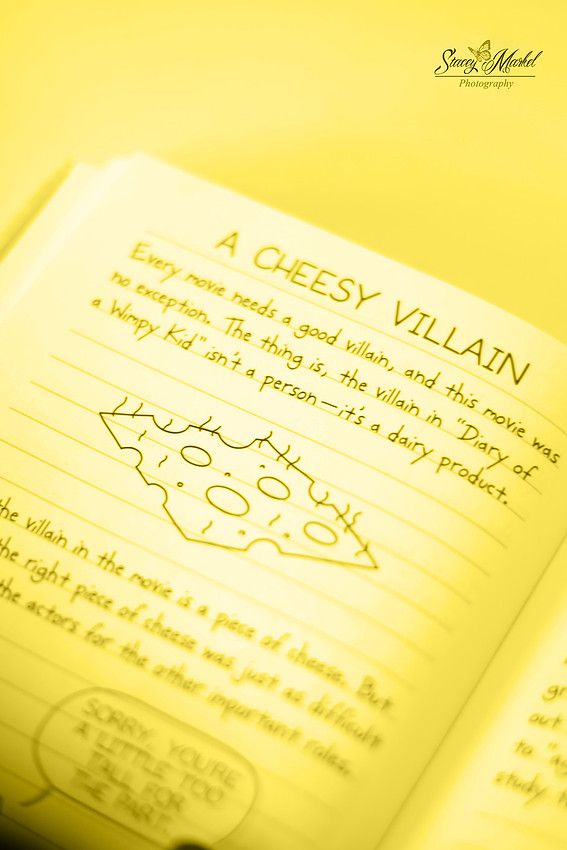 Stacey Markel
Photography
A CHEESY VILLAIN
Every movie needs a good villain, and this movie was
no exception. The thing is, the villain in "Diary of
a Wimpy Kid" isn't a person—it's a dairy product.
the villain in the movie is a piece of cheese. But
the right piece of cheese was just as difficult
the actors for the other important roles.
SORRY, YOU'RE
A LITTLE TOO
TALL FOR
THE PART.
out
to
study